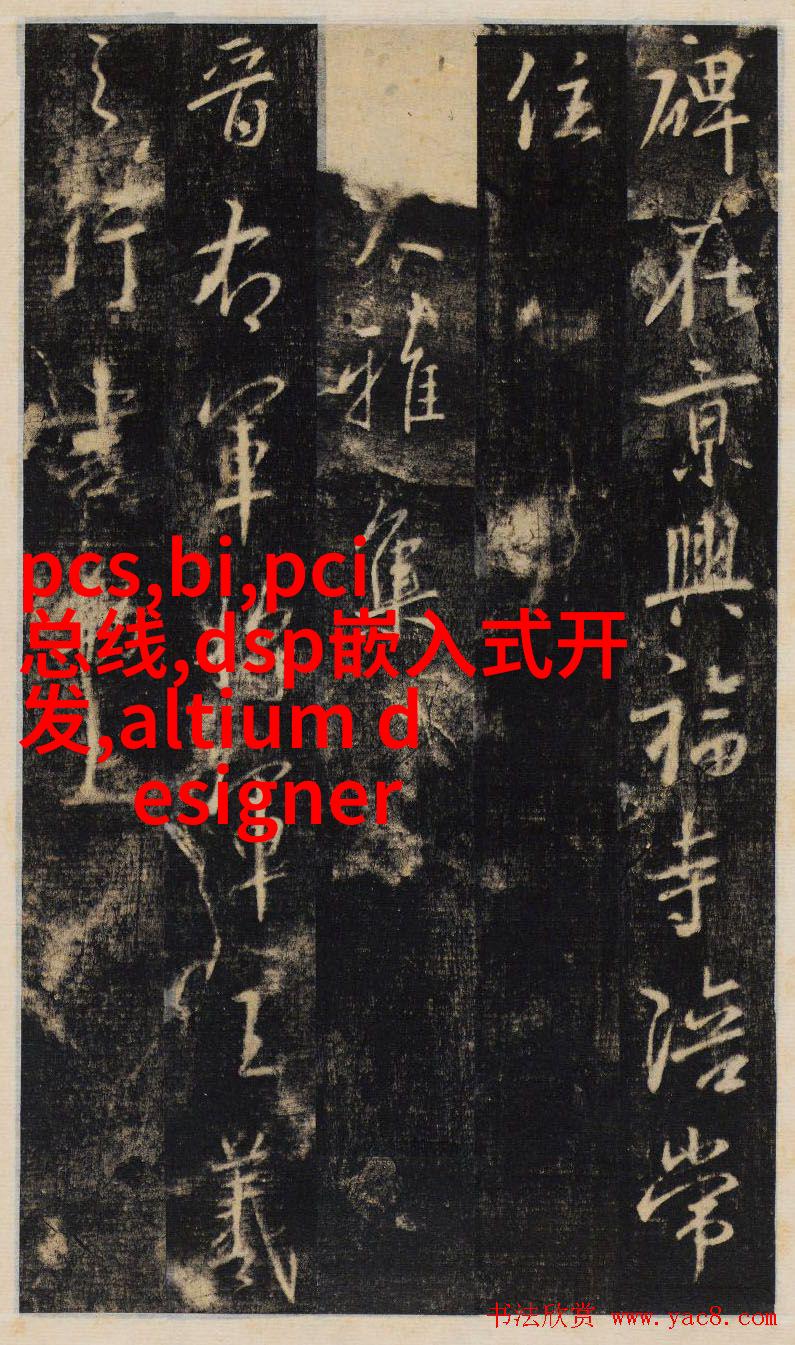 碑在京興福寺陪常
住
大雅集
晋右軍將軍王羲
之行書
pcs,bi,pci
总线,dsp嵌入式开
发,altium d
esigner
书法欣赏 www.yac8.com